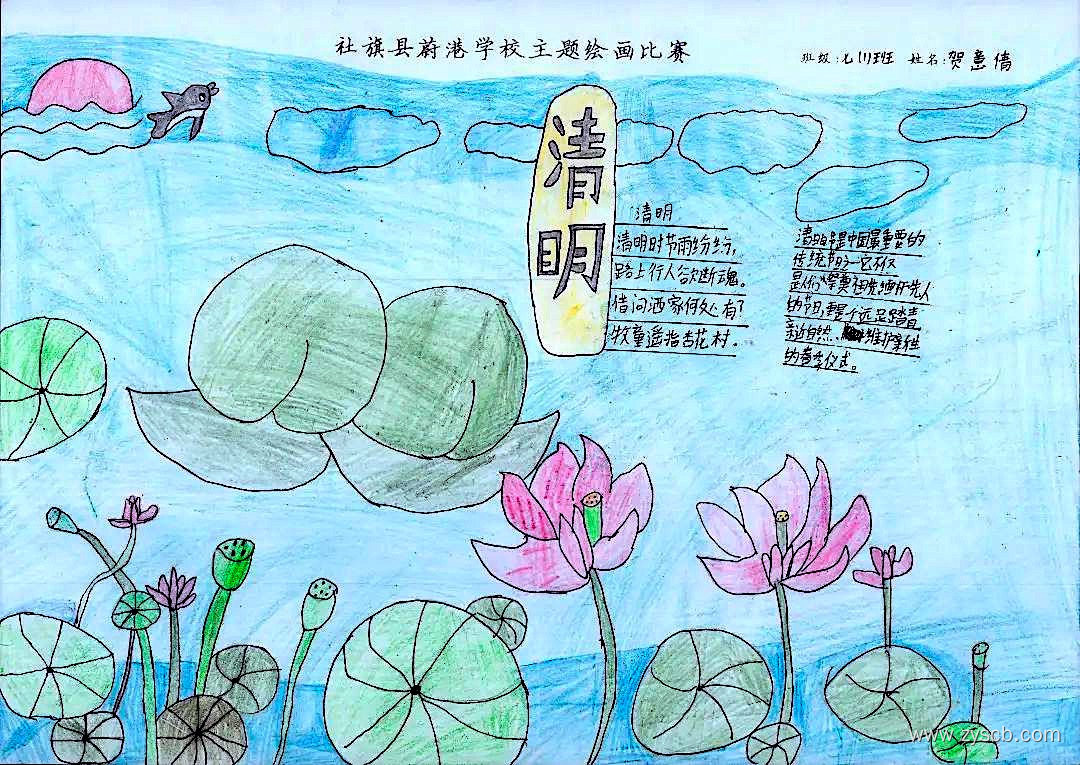 社旗县蔚港学校主题绘画比赛
班级:七(1)班 姓名:贺意倩
清明
清明
清明时节雨纷纷,
路上行人欲断魂。
借问酒家何处有?
牧童遥指杏花村。
清明是中国最重要的
传统节日之一它不仅
是人们祭奠祖先缅怀先人
的节日,
远足踏青
亲近自然
的春季仪式。
www.zyscb.com